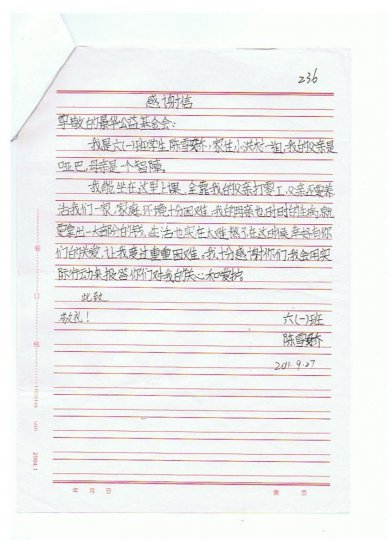 236
感谢信
尊敬的景华公益基金会:
我是六(一)班学生陈雪娇,家住小洪村一组,我的父亲是
哑巴,母亲是一个智障。
我能坐在这里上课,全靠我的父亲打零工,父亲还要养
活我们一家,家庭环境十分困难,我的母亲也时时的生病,就
要拿出一大部分的钱,生活也实在太难熬了在这时候幸好有你
们的关爱,让我度过重重困难。我十分感谢你们,我会用实
际行动来报答你们对我的关心和爱护。
此致
敬礼!
六(一)班
陈雪娇
2011.9.27
装
订
线
2004.1
年 月 日 第 页